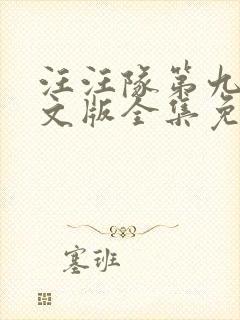 汪汪隊第九
文版全集免
塞班